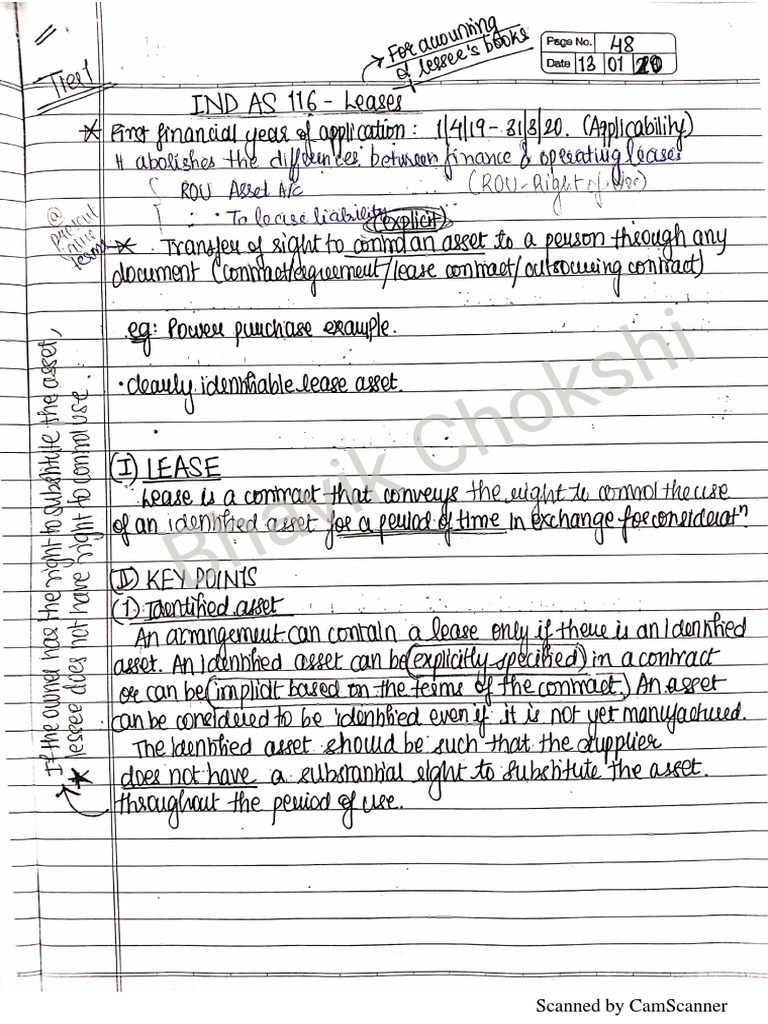 Page No. 48
Date 13 01 20
For accounting
of lessee's books
Tier 1
IND AS 116 - Leases
* First financial year of application: 1/4/19 - 31/3/20. (Applicability)
It abolishes the differences between finance & operating leases
ROU Asset A/c (ROU-Right of Use)
To lease liability
@
present
value
terms
(explicit)
* Transfer of right to control an asset to a person through any
document (contract/agreement/lease contract/outsourcing contract)
eg: Power purchase example.
• clearly identifiable lease asset.
(I) LEASE
Lease is a contract that conveys the right to control the use
of an identified asset for a period of time in exchange for consideratn
(II) KEY POINTS
(1) Identified asset
An arrangement can contain a lease only if there is an identified
asset. An identified asset can be (explicitly specified) in a contract
or can be (implicit based on the terms of the contract.) An asset
can be considered to be identified even if it is not yet manufactured.
The identified asset should be such that the supplier
does not have a substantial right to substitute the asset
throughout the period of use.
If the owner has the right to substitute the asset,
* lessee does not have right to control use.
Bhavik Chokshi
Scanned by CamScanner